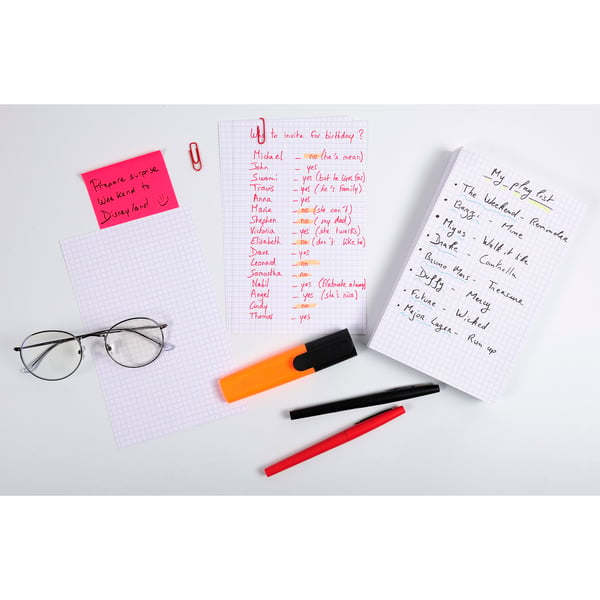 Prepare surprise
Weekend to
Disneyland
Who to invite for birthday?
Michael - no (he's mean)
John - yes
Swami - yes (but he lives far)
Travis - yes (he's family)
Anna - yes
Maria - no (she can't)
Stephen - no (my dad)
Victoria - yes (she twerks)
Elisabeth - no (don't like he)
Dave - yes
Leonard - no
Samantha - no
Nabil - yes (flatmate
Angel - yes (she's nice)
Cindy - no
Thomas - yes
My playlist
• The Weekend - Reminder
• Bazzi - Mine
• Migos - Walk it
• Drake - Controlla
• Bruno Mars - Treasure
• Duffy - Mercy
• Future - Wicked
• Major Lazer - Run up